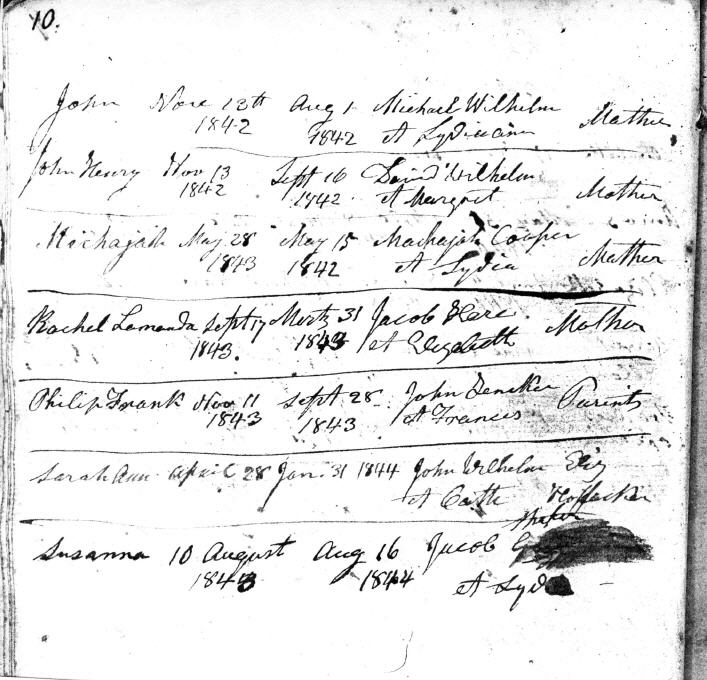 10.
John Nov 13th Aug 1 Michael Wilhelm Mother
1842 1842 et Lydiaann
John Henry Nov 13 Sept 16 David Wilhelm
1842 1842 et Margret Mother
Michajah May 28 May 15 Machajah Cooper
1843 1842 et Lydia Mother
Rachel Lamanda Sept 17 31 Jacob Mother
1843 1843 et Elizabeth
Philip Frank Nov 11 Sept 28 John Parints
1843 1843 et Frances
Sarah Ann April 28 Jan. 31 1844 John Wilhelm Eliz
et Cath Hoffacker
Susanna 10 August Aug 16 Jacob
1843 1844 et Lyd